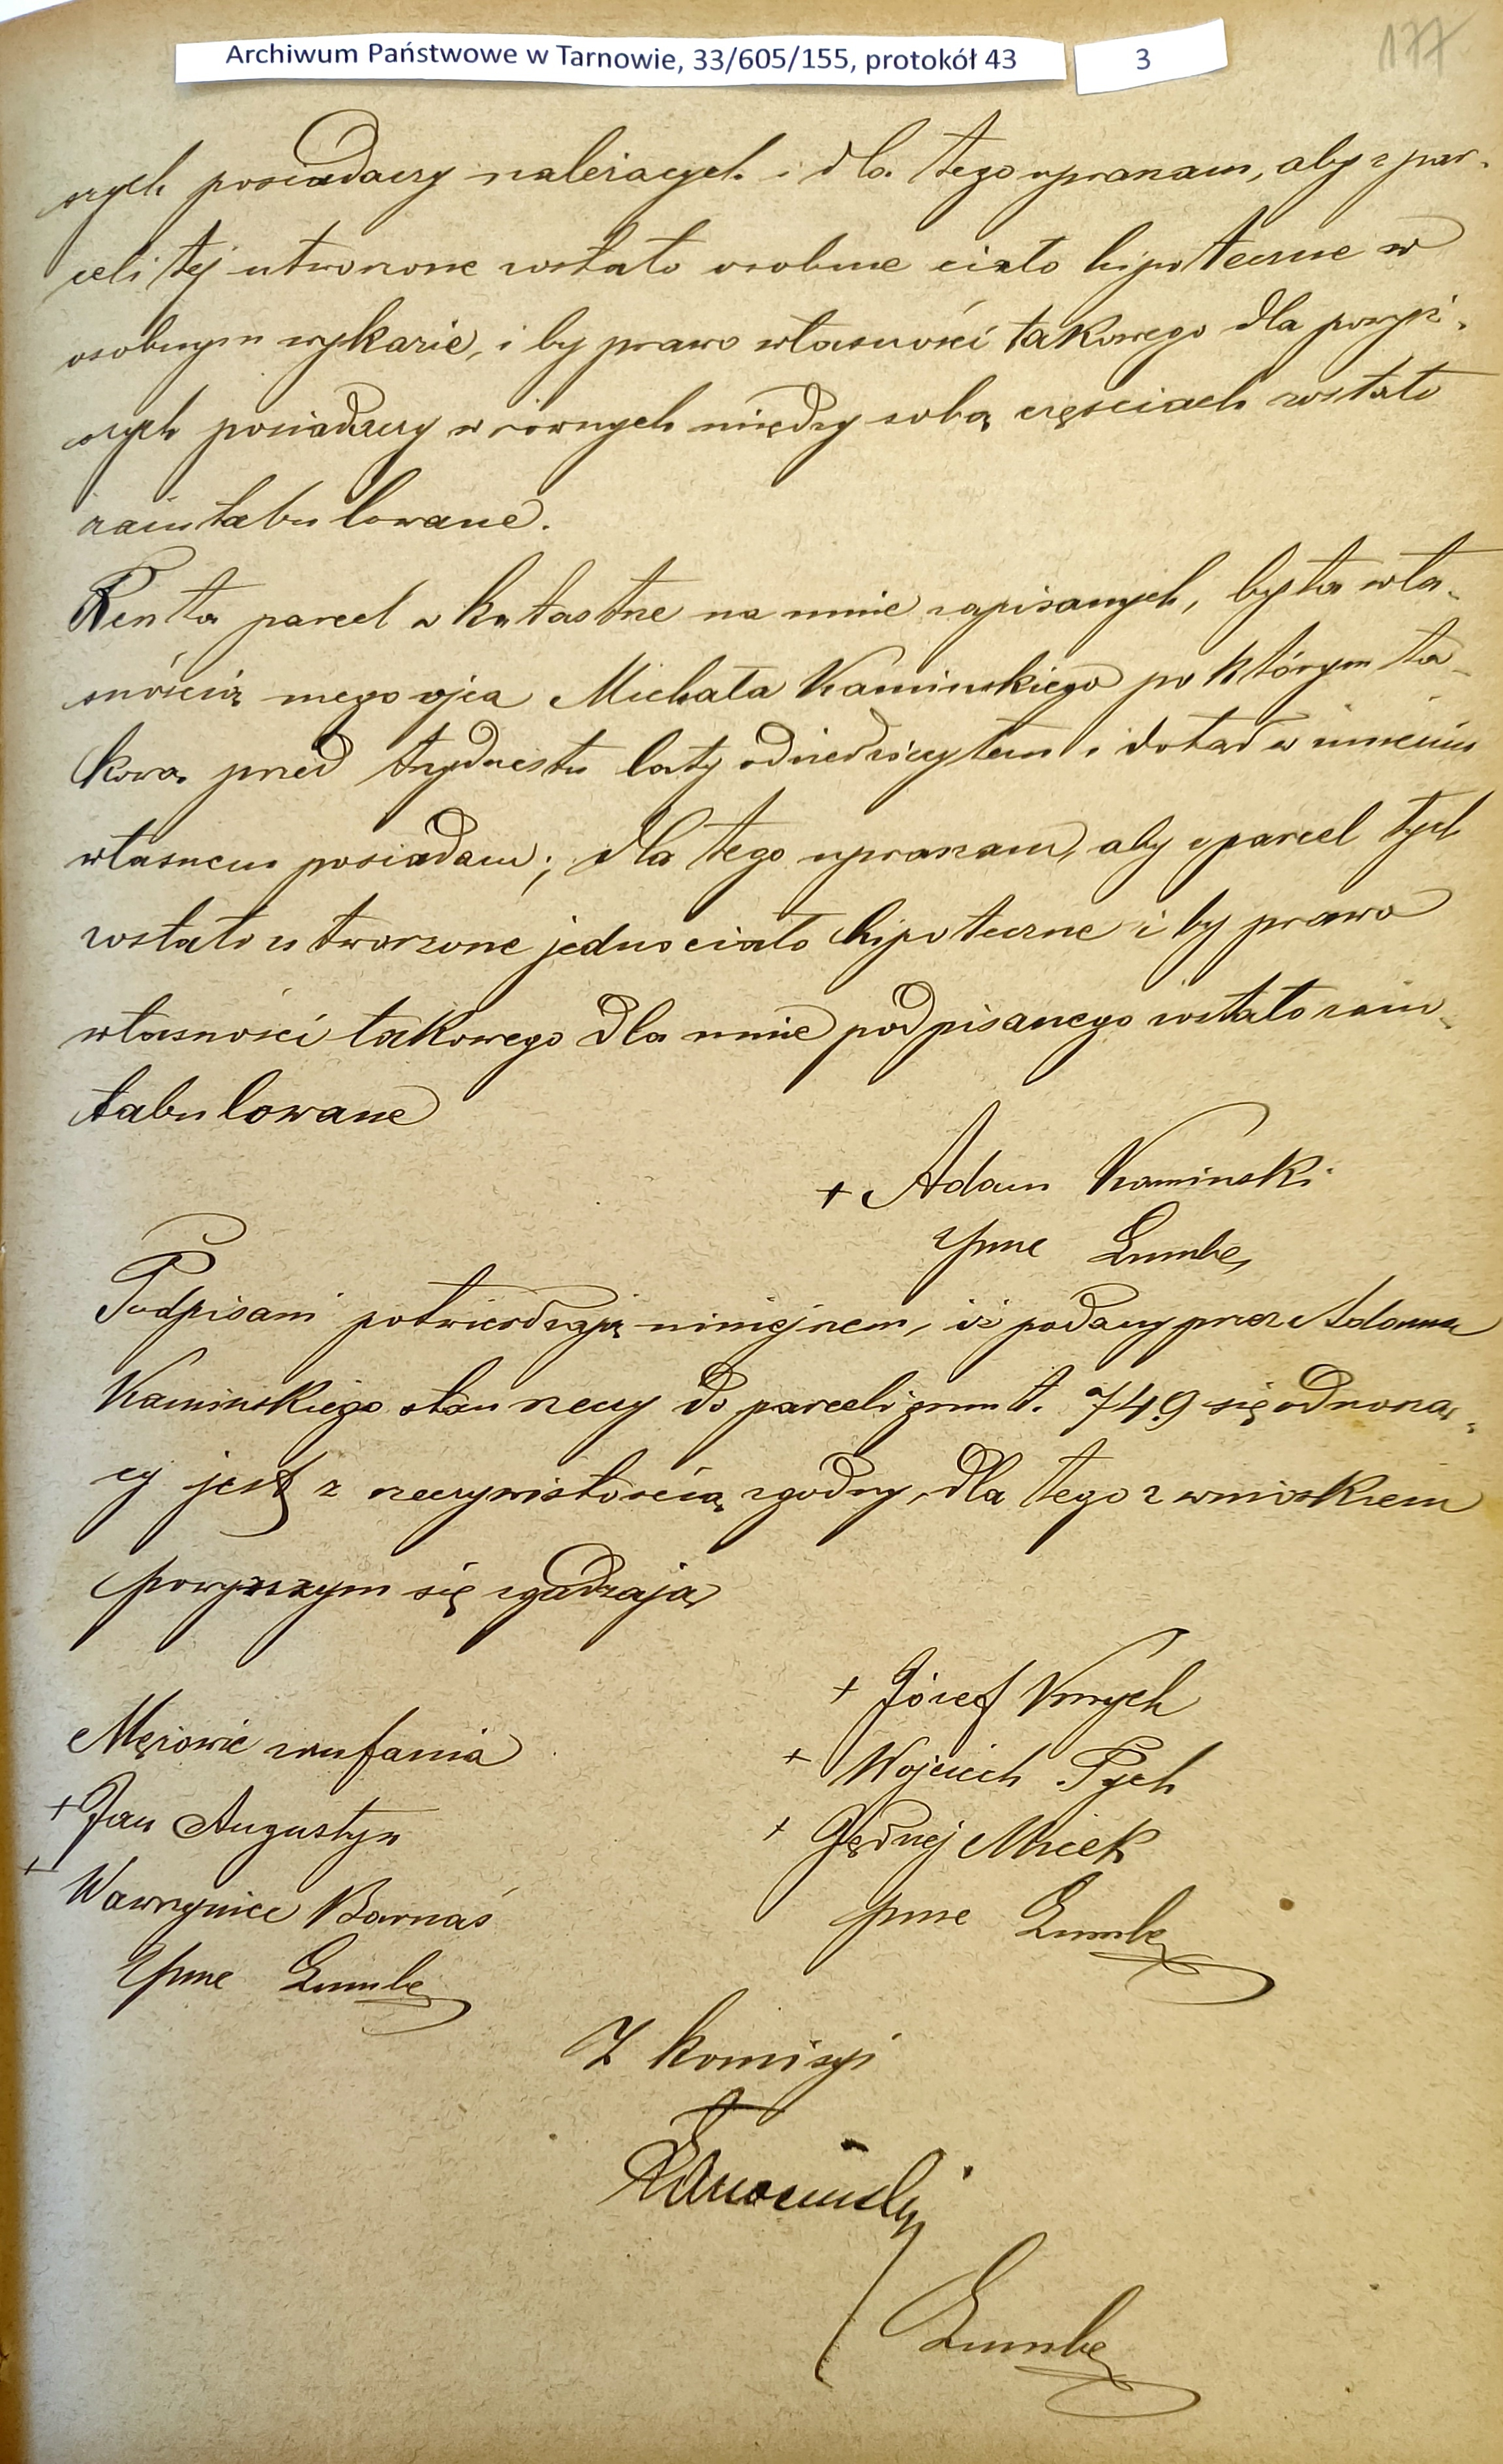 Archiwum Państwowe w Tarnowie, 33/605/155, protokół 43 3
177
szych posiadaczy należących i dla tego upraszam, aby z par-
celi tej utworzone zostało osobne ciało hipoteczne w
osobnym wykazie, i by prawo własności takowego dla powyż-
szych posiadaczy w równych między sobą częściach zostało
zaintabulowane.
Reszta parcel w katastrze na mnie zapisanych, była wła-
snością mego ojca Michała Kaminskiego po którym ta-
kową przed trzydziestu laty odziedziczyłem i dotąd w imieniu
własnem posiadam; dla tego upraszam, aby z parcel tych
zostało utworzone jedno ciało hipoteczne i by prawo
własności takowego dla mnie podpisanego zostało zain-
tabulowane
+ Adam Kaminski
Podpisani potwierdzają niniejszem, iż podany przez Adama
Kaminskiego stan rzeczy do parceli grunt. 749 się odnoszą-
cy jest z rzeczywistością zgodny, dla tego z wnioskiem
powyższym się zgadzają
+ Józef
+ Wojciech Pych
+ Jędrzej Micek
Mężowie zaufania
+ Jan Augustyn
+ Wawrzyniec Barnaś
Z komisyi